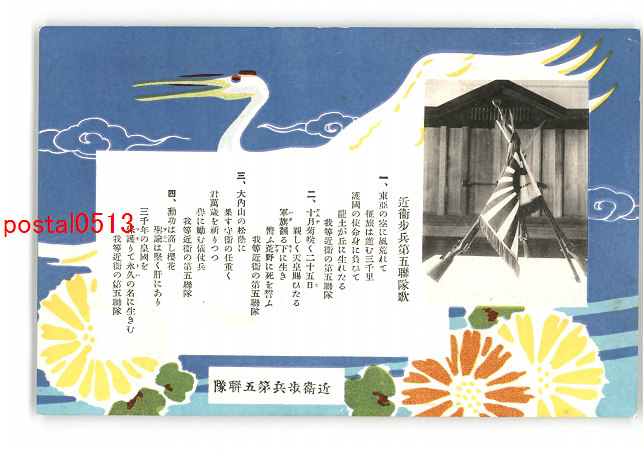 近衛歩兵第五聯隊歌
一、東亞の空に風荒れて
征旅は進む三千里
護國の使命身に負ひて
龍土が丘に生れたる
我等近衛の第五聯隊
二、十月菊咲く二十五日
親しく天皇賜ひたる
軍旗飜る下に生き
誓ふ荒野に死を誓ふ
我等近衛の第五聯隊
三、大内山の松蔭に
果す守衛の任重く
君萬歳を祈りつつ
譽に勵む儀仗兵
我等近衛の第五聯隊
四、勳功は高し櫻花
聖諭は堅く肝にあり
三千年の皇國を
護りて永久の名に生きむ
我等近衛の第五聯隊
近衛歩兵第五聯隊
postal0513